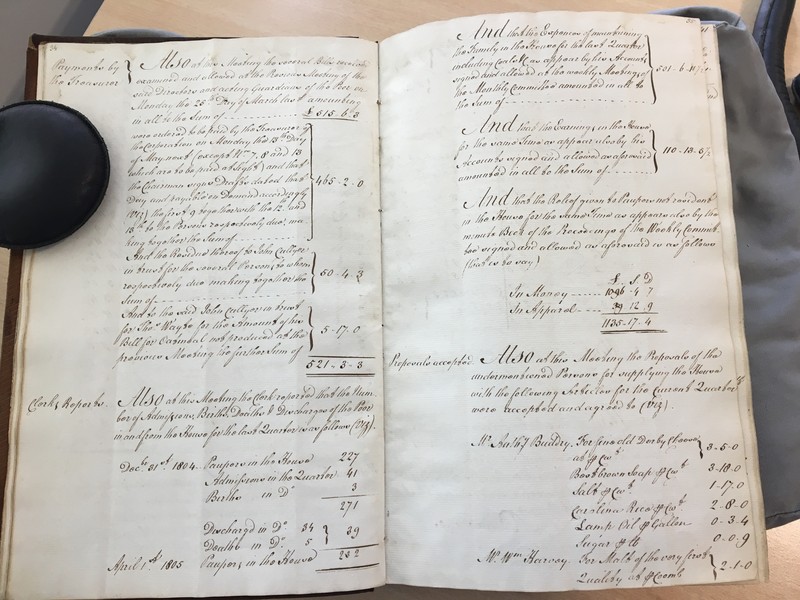 24
Payments by
the Treasurer
Also at this Meeting the several Bills
examined and allowed at the previous Meeting of the
said Directors and acting Guardians of the Poor on
Monday the 25th Day of March last amounting
in all to the Sum of £515-6-3
were ordered to be paid by the Treasurer of
the Corporation on Monday the 13th Day
of May next (except No. 7, 8 and 13
which are to be paid at Sight) and that
the Chairman signs Drafts dated that
Day and payable on Demand accordingly
(Viz) the first 9 together with the 12th and
13th to the Persons respectively due, ma-
king together the Sum of 465-2-0
And the Residue thereof to John Cullyer
in trust for the several Persons to whom
respectively due making together the
Sum of 50-4-3
And to the said John Cullyer in trust
for Tho. Wayte for the Amount of his
Bill for not produced at the
previous Meeting the further Sum of
5-17-0
521-3-3
Clerk's Reports.
Also at this Meeting the Clerk reported that the Num-
ber of Admissions, Births, Deaths & Discharges of the Poor
in and from the House for the last Quarter is as follows (Viz).
Decr. 31st. 1804. Paupers in the House 227
Admissions in the Quarter 41
Births in Do. 3
271
Discharg'd in Do. 34
Deaths in Do. 5
39
April 1st. 1805 Paupers in the House 232
And that the Expences of maintaining
the Family in the House for the last Quarter
including Coals &c. as appear by his Accounts
signed and allowed at the weekly Meetings of
the Monthly Committees amounted in all to
the Sum of
And that the Earnings in the House
for the same Time as appear also by his
Accounts signed and allowed as aforesaid
amounted in all to the Sum of
And that the Relief given to Paupers not resident
in the House for the same Time as appears also by the
minute Book of the Proceedings of the Weekly Commit-
tee signed and allowed as aforesaid is as follows
(that is to say)
£ S. D
In Money 1096-4-7
In Apparel 39 12-9
1135-17-4
Proposals accepted.
Also at this Meeting the Proposals of the
undermentioned Persons for supplying the House
with the following Articles for the Current Quarter
were accepted and agreed to (Viz).
Mr. Anthy. Buddry. For fine old Derby Cheese
at P Cwt. 3-5-0
Best brown Soap P Cwt. 3-18-0
Salt P Cwt. 1-17-0
Carolina Rice P Cwt. 2-8-0
Lamp Oil P Gallon 0-3-4
Sugar P lb 0-0-9
Mr. Wm. Harvey. For Malt of the very first
Quality at P Coomb 2-1-0